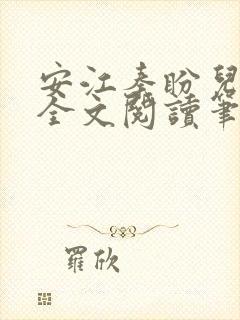 安江秦盼兒
全文閱讀筆
羅欣